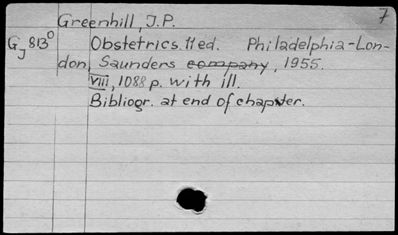 7
Greenhill, J.P.
GJ 813⁰ Obstetrics. 11ed. Philadelphia-Lon-
don, Saunders company, 1955.
VIII, 1088 p. with ill.
Bibliogr. at end of chapter.